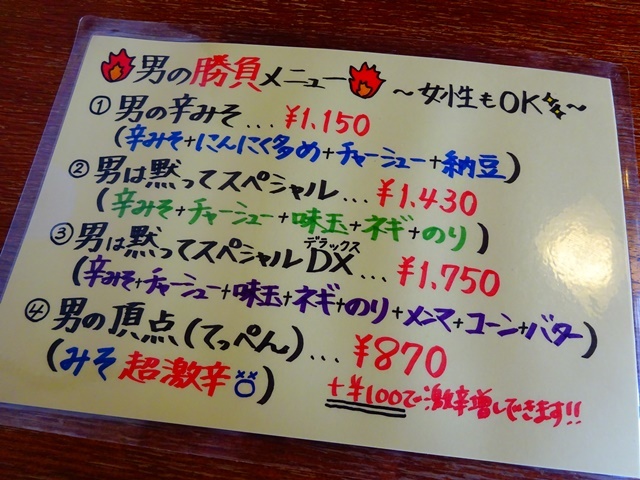 男の勝負メニュー ～女性もOK～
① 男の辛みそ... ¥1,150
(辛みそ+にんにく多め+チャーシュー+納豆)
② 男は黙ってスペシャル... ¥1,430
(辛みそ+チャーシュー+味玉+ネギ+のり)
デラックス
③ 男は黙ってスペシャルDX... ¥1,750
(辛みそ+チャーシュー+味玉+ネギ+のり+メンマ+コーン+バター)
④ 男の頂点(てっぺん)... ¥870
(みそ 超激辛)
+¥100で激辛増しできます!!